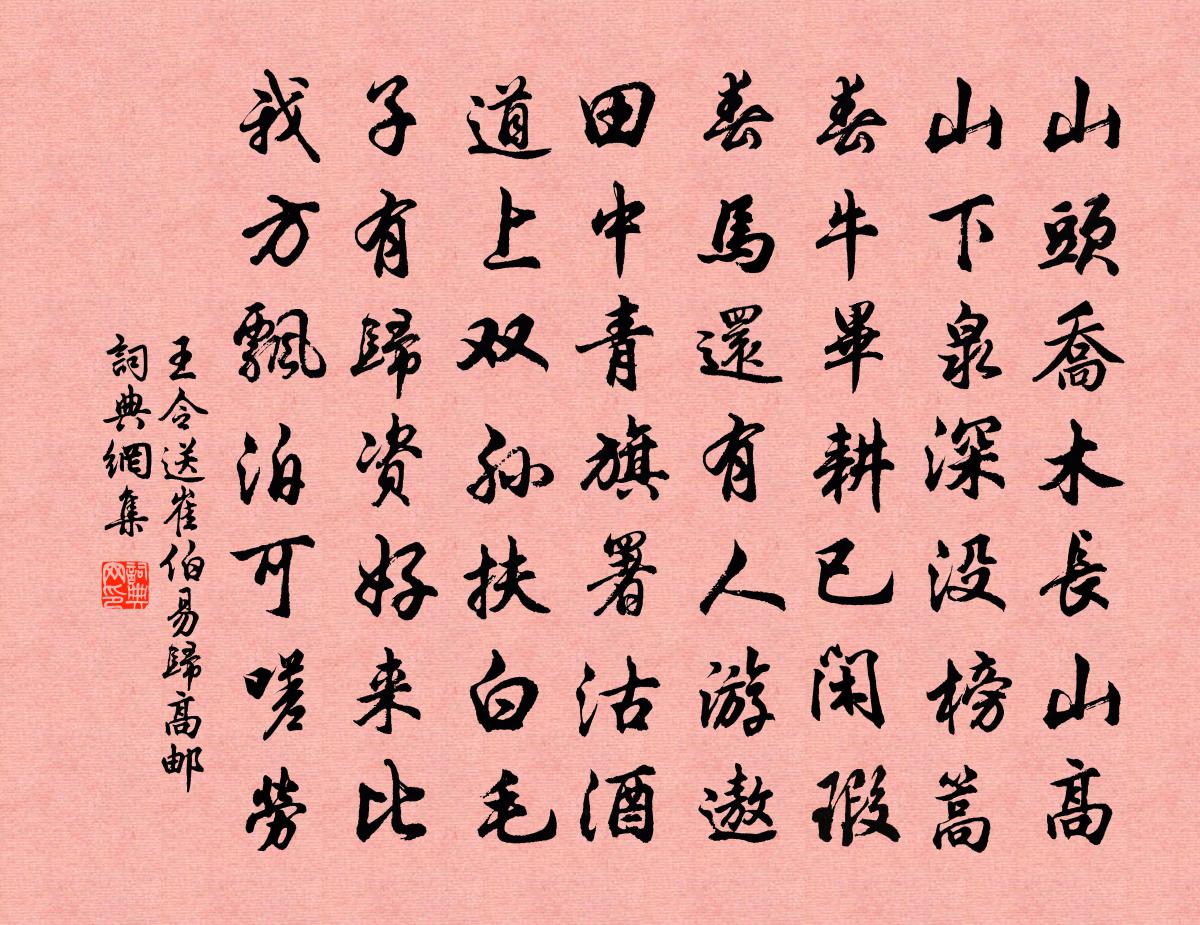 山頭喬木長山高
山下泉深没榜蒿
春牛畢耕已闲瑕
春馬還有人游遨
田中青旗署沽酒
道上双孙扶白毛
子有歸资好来比
我方飄泊可嗟勞
王令送崔伯易歸高邮
詞典網集
詞典网印